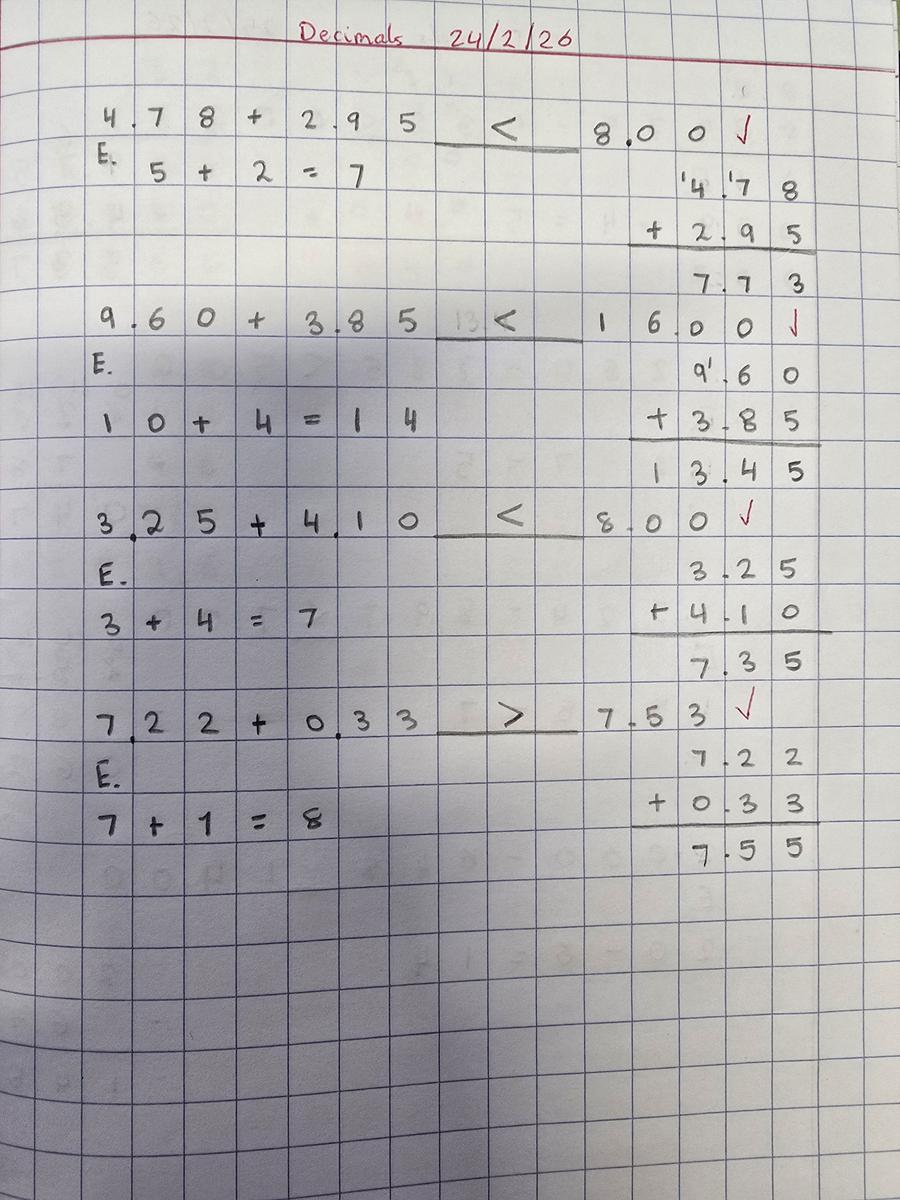 Decimals 24/2/26
4.78 + 2.95 < 8.00 ✓
E.
5 + 2 = 7
4.78
+ 2.95
7.73
9.60 + 3.85 < 16.00 ✓
E.
10 + 4 = 14
9.60
+ 3.85
13.45
3.25 + 4.10 < 8.00 ✓
E.
3 + 4 = 7
3.25
+ 4.10
7.35
7.22 + 0.33 > 7.53 ✓
E.
7 + 1 = 8
7.22
+ 0.33
7.55